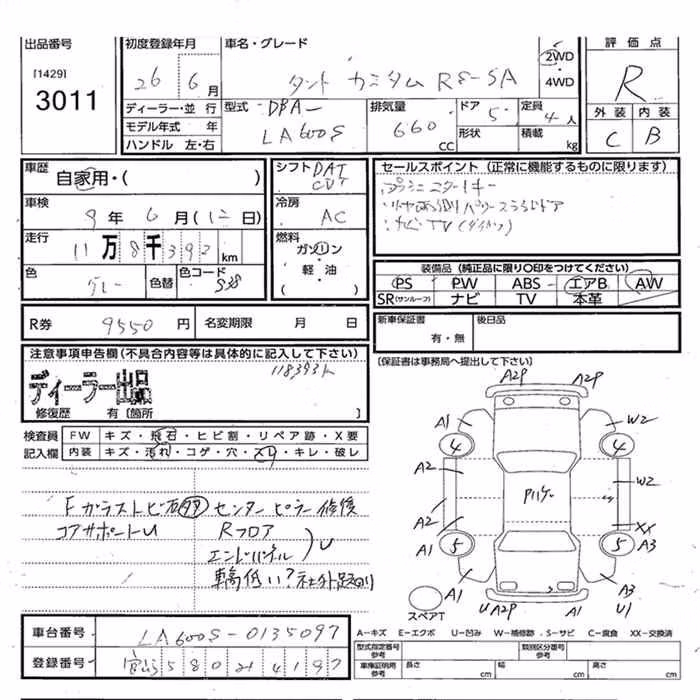 出品番号
[1429]
3011
初度登録年月
26 6月
車名・グレード
タント カスタム RS-SA
2WD
・
4WD
評価点
R
外装 内装
C B
ディーラー・並 行
モデル年式 年
ハンドル 左・右
型式 DBA-
LA600S
排気量
660 CC
ドア 5
形状
定員
4人
積載 kg
車歴
自家用・( )
車検
9年 6月(12日)
走行
11万8千392km
色
グレー
色替
色コード
S38
シフト DAT
CVT
冷房
AC
燃料
ガソリン
・
軽・油
セールスポイント(正常に機能するものに限ります)
プッシュスタートキー
ナビTV
装備品(純正品に限り〇印をつけてください)
PS PW ABS エアB AW
SR(サンルーフ) ナビ TV 本革
R券 9550円 名変期限 月 日
新車保証書
有・無
後日品
注意事項申告欄(不具合内容等は具体的に記入して下さい)
118393k
ディーラー出品
修復歴 有〔箇所 〕
〔保証書は事務局へ提出して下さい〕
検査員
記入欄
FW キズ・飛石・ヒビ割・リペア跡・X要
内装 キズ・汚れ・コゲ・穴・スレ・キレ・破レ
Fガラストビ石 センターピラー修復
コアサポートU Rフロア
エンドパネル U
車高低い?社外
A2P A2P
A1 W2
4 4
A2 W2
Pパケ
A2 XX
A1 5 5 A3
A1 U A2P A2P A3
U1
スペアT
車台番号 LA600S-0135097
登録番号 580 2 4197
A-キズ E-エクボ U-凹み W-補修跡 S-サビ C-腐食 XX-交換済
型式指定番号
参考
類別区分番号
参考
車庫証明用
参考
長さ cm
幅 cm
高さ cm